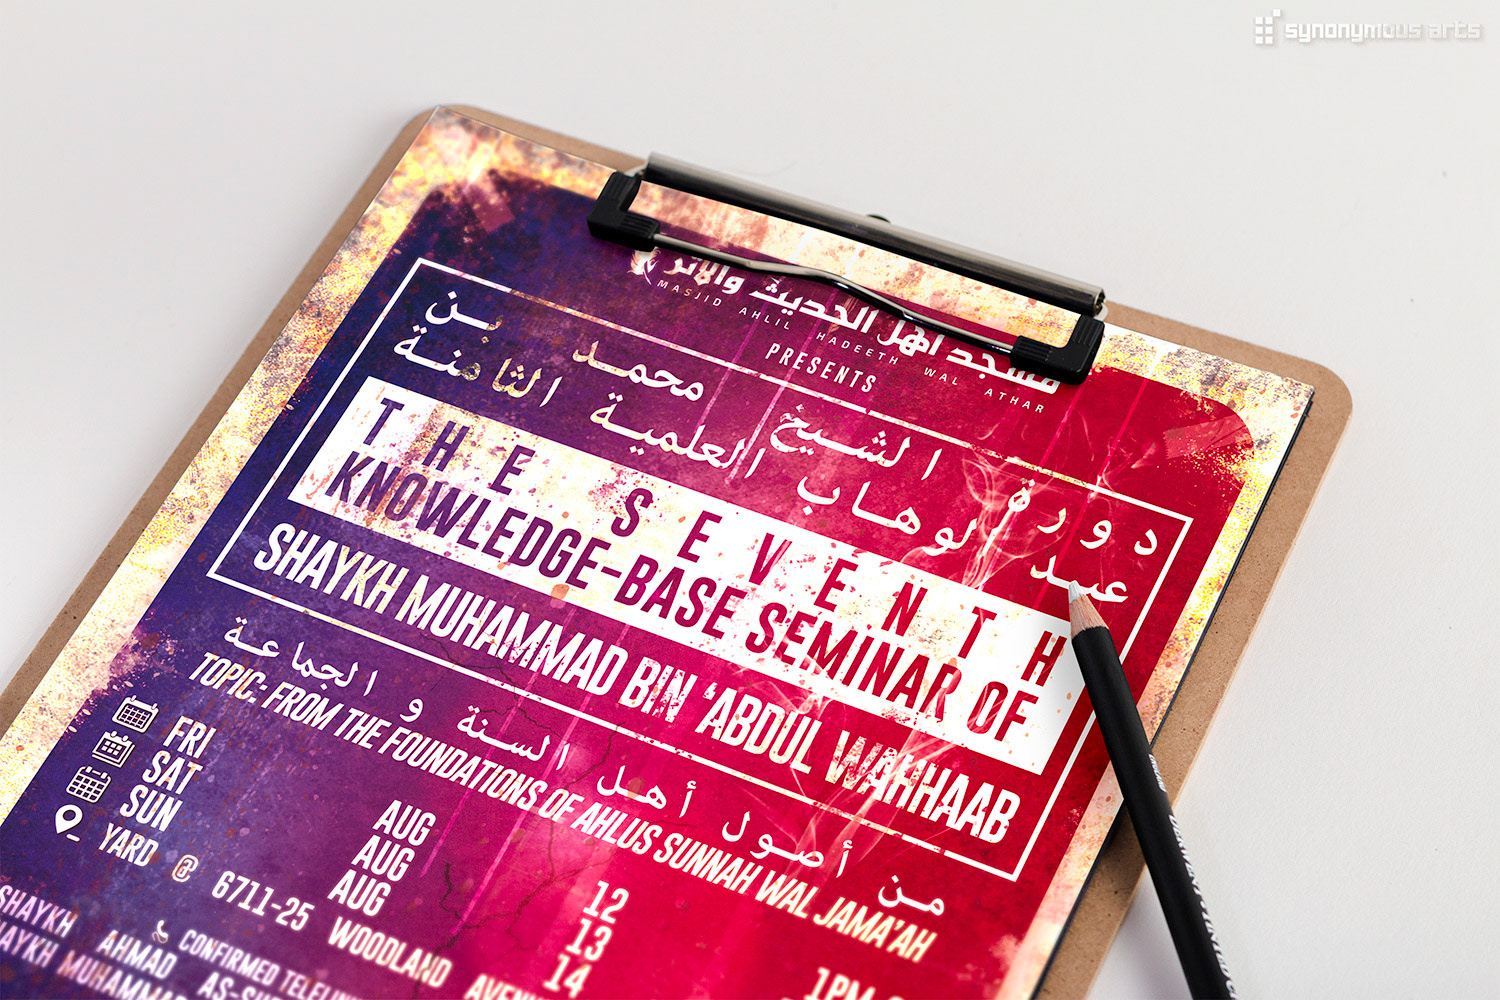 synonymous arts
مسجد أهل الحديث والأثر
MASJID AHLIL HADEETH WAL ATHAR
PRESENTS
دورة الشيخ محمد بن
عبد الوهاب العلمية الثامنة
THE SEVENTH
KNOWLEDGE-BASE SEMINAR OF
SHAYKH MUHAMMAD BIN 'ABDUL WAHHAAB
من أصول أهل السنة و الجماعة
TOPIC: FROM THE FOUNDATIONS OF AHLUS SUNNAH WAL JAMA'AH
FRI AUG 12 1PM
SAT AUG 13
SUN AUG 14
YARD @ 6711-25 WOODLAND
CONFIRMED
SHAYKH AHMAD